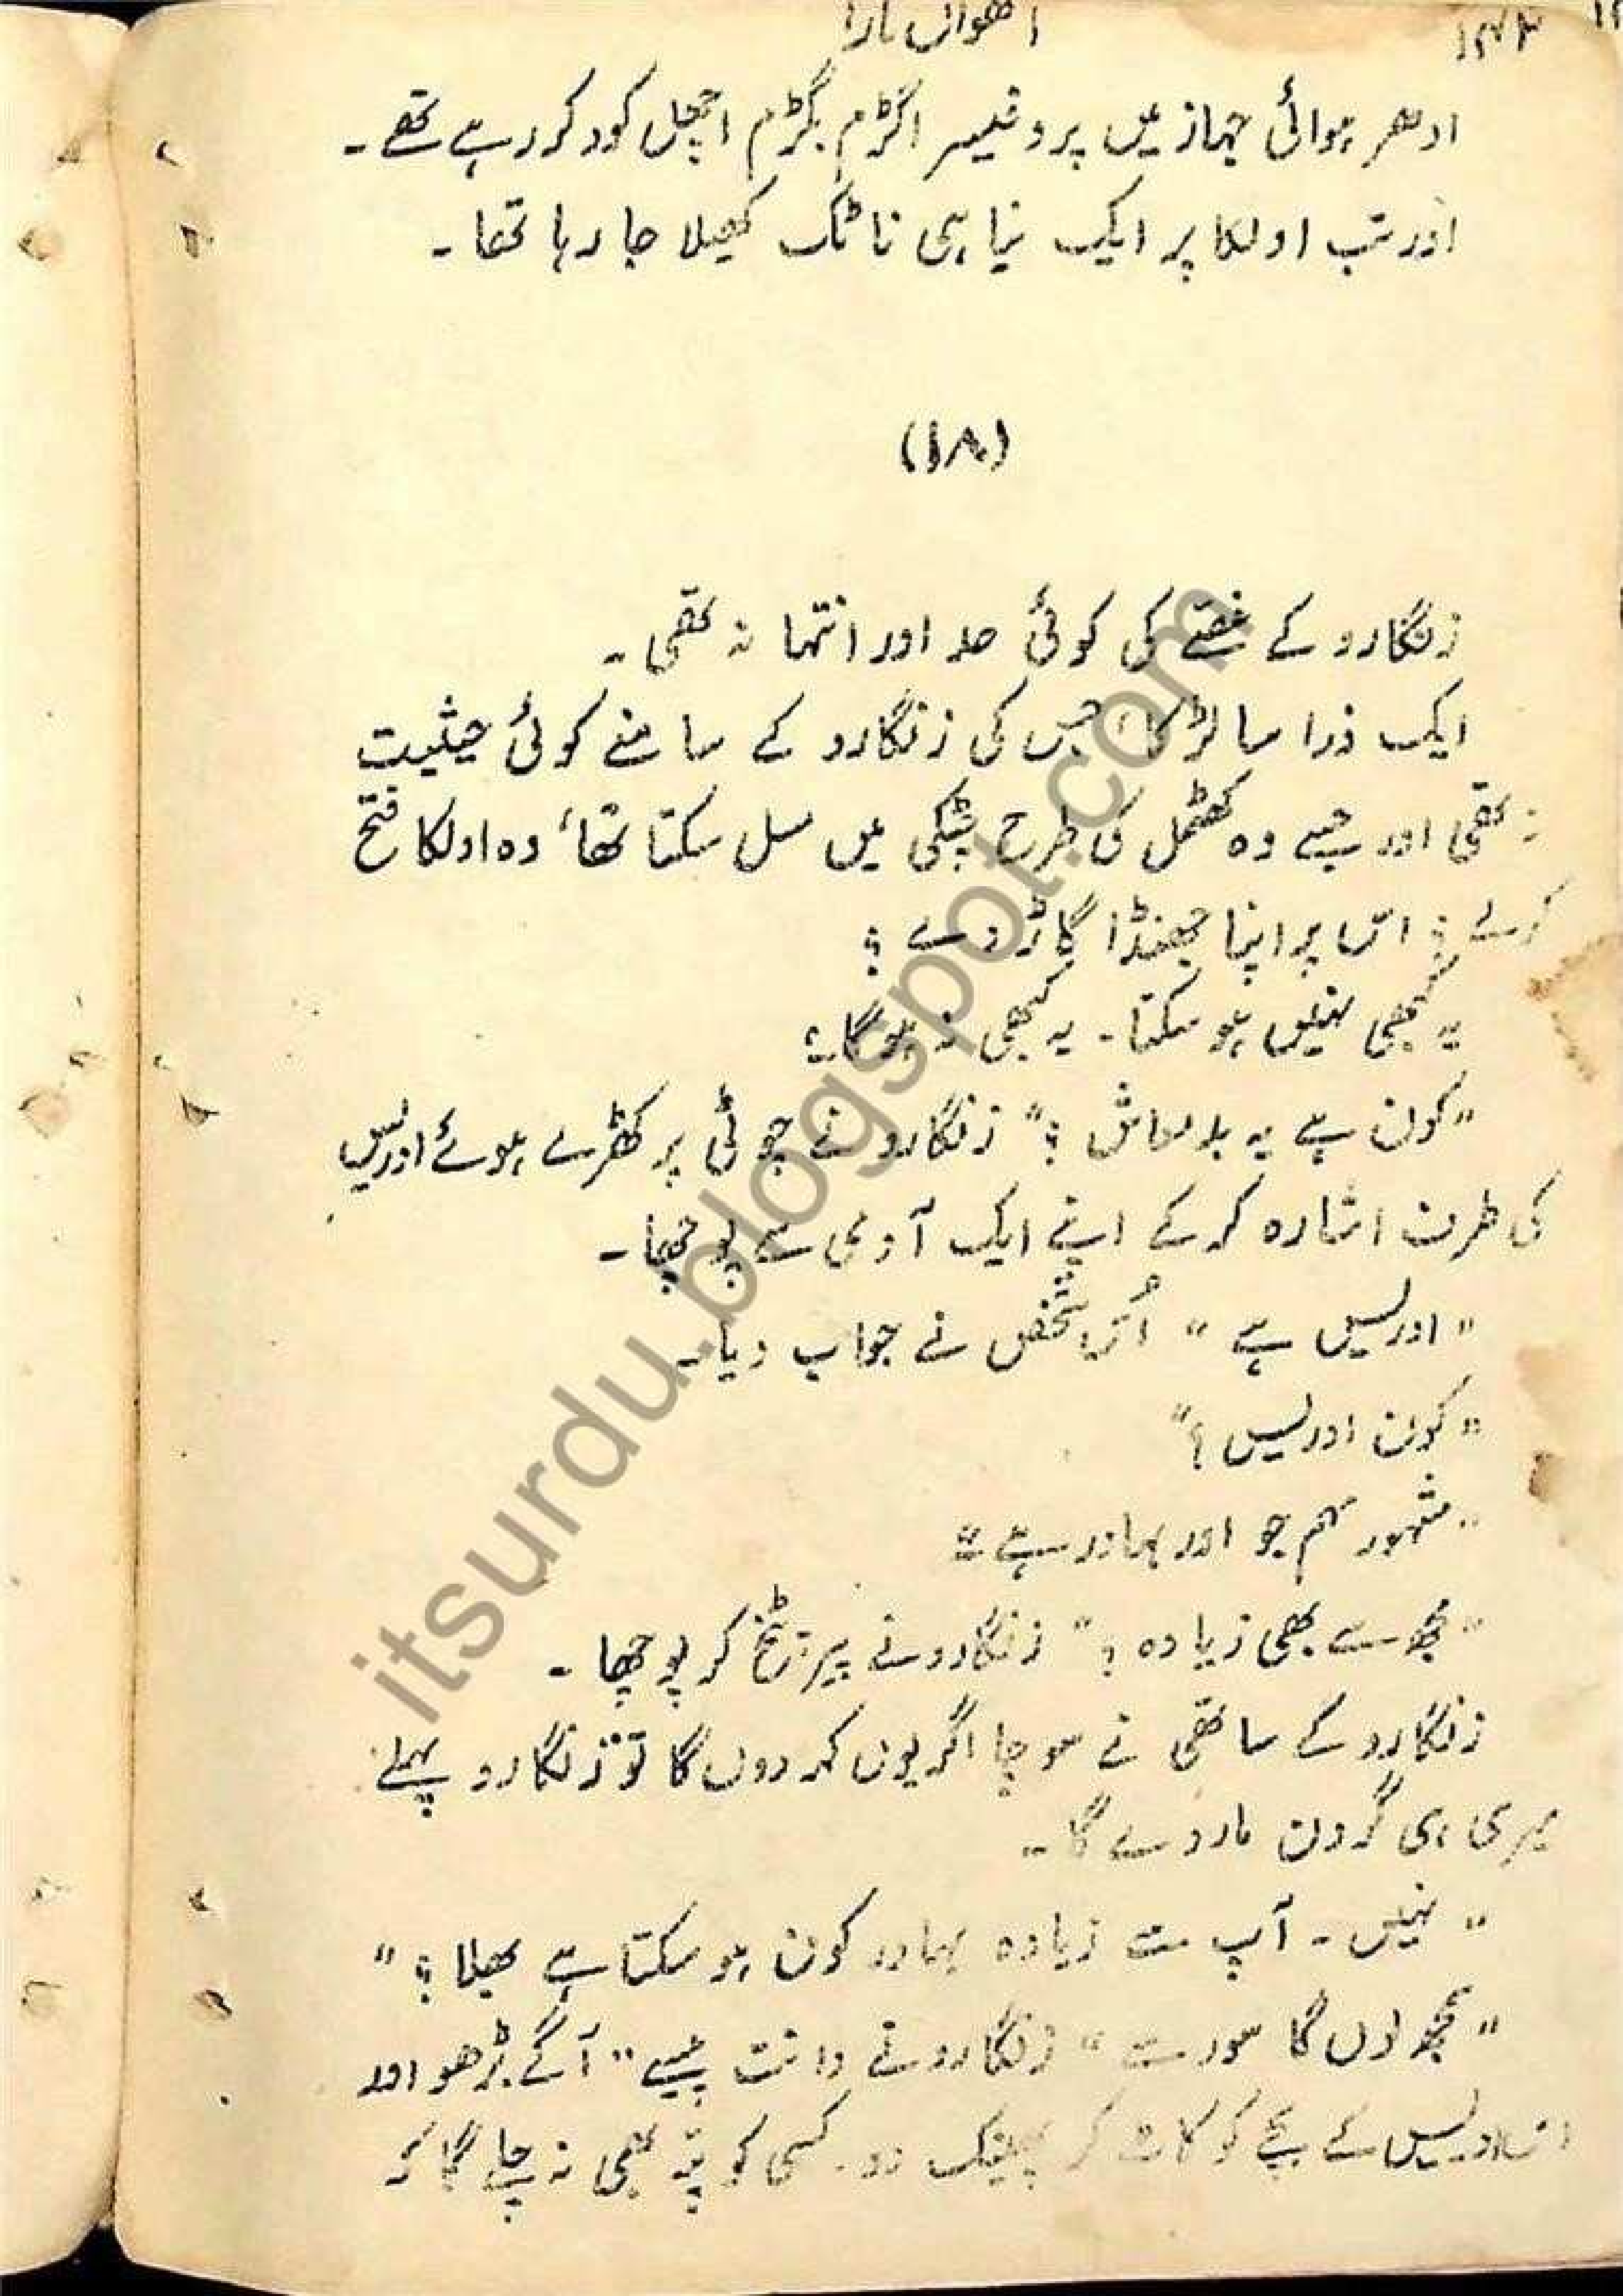 ادھر ہوائی جہاز میں پروفیسر اکڑم بگڑم اچھل کود کر رہے تھے۔
اور تب اولکا پر ایک نیا ہی ناٹک کھیلا جا رہا تھا۔
(۱۸)
زنگارو کے غصّے کی کوئی حد اور انتہا نہ تھی۔
ایک ذرا سا لڑکا، جس کی زنگارو کے سامنے کوئی حیثیت
نہ تھی اور جسے وہ کھٹمل کی طرح چٹکی میں مسل سکتا تھا، وہ اولکا فتح
کرلے؟ اس پر اپنا جھنڈا گاڑ دے؟
یہ کبھی نہیں ہو سکتا۔ یہ کبھی نہ ہوگا۔
"کون ہے یہ بدمعاش؟" زنگارو نے چوٹی پر کھڑے ہوئے ادریس
کی طرف اشارہ کر کے اپنے ایک آدمی سے پوچھا۔
"ادریس ہے" اُس شخص نے جواب دیا۔
"کون ادریس؟"
"مشہور مہم جو اور بہادر ہے"
"مجھ سے بھی زیادہ؟" زنگارو نے پیر پٹخ کر پوچھا۔
زنگارو کے ساتھی نے سوچا اگر یوں کہہ دوں گا تو زنگارو پہلے
میری ہی گردن مار دے گا۔
"نہیں۔ آپ سے زیادہ بہادر کون ہو سکتا ہے بھلا؟"
"سور سے" زنگارو نے دانت پیسے "آگے بڑھو اور
اس ادریس کے بچے کو کاٹ کر پھینک دو۔ کسی کو پتہ بھی نہ چلے گا کہ
itsurdu.blogspot.com